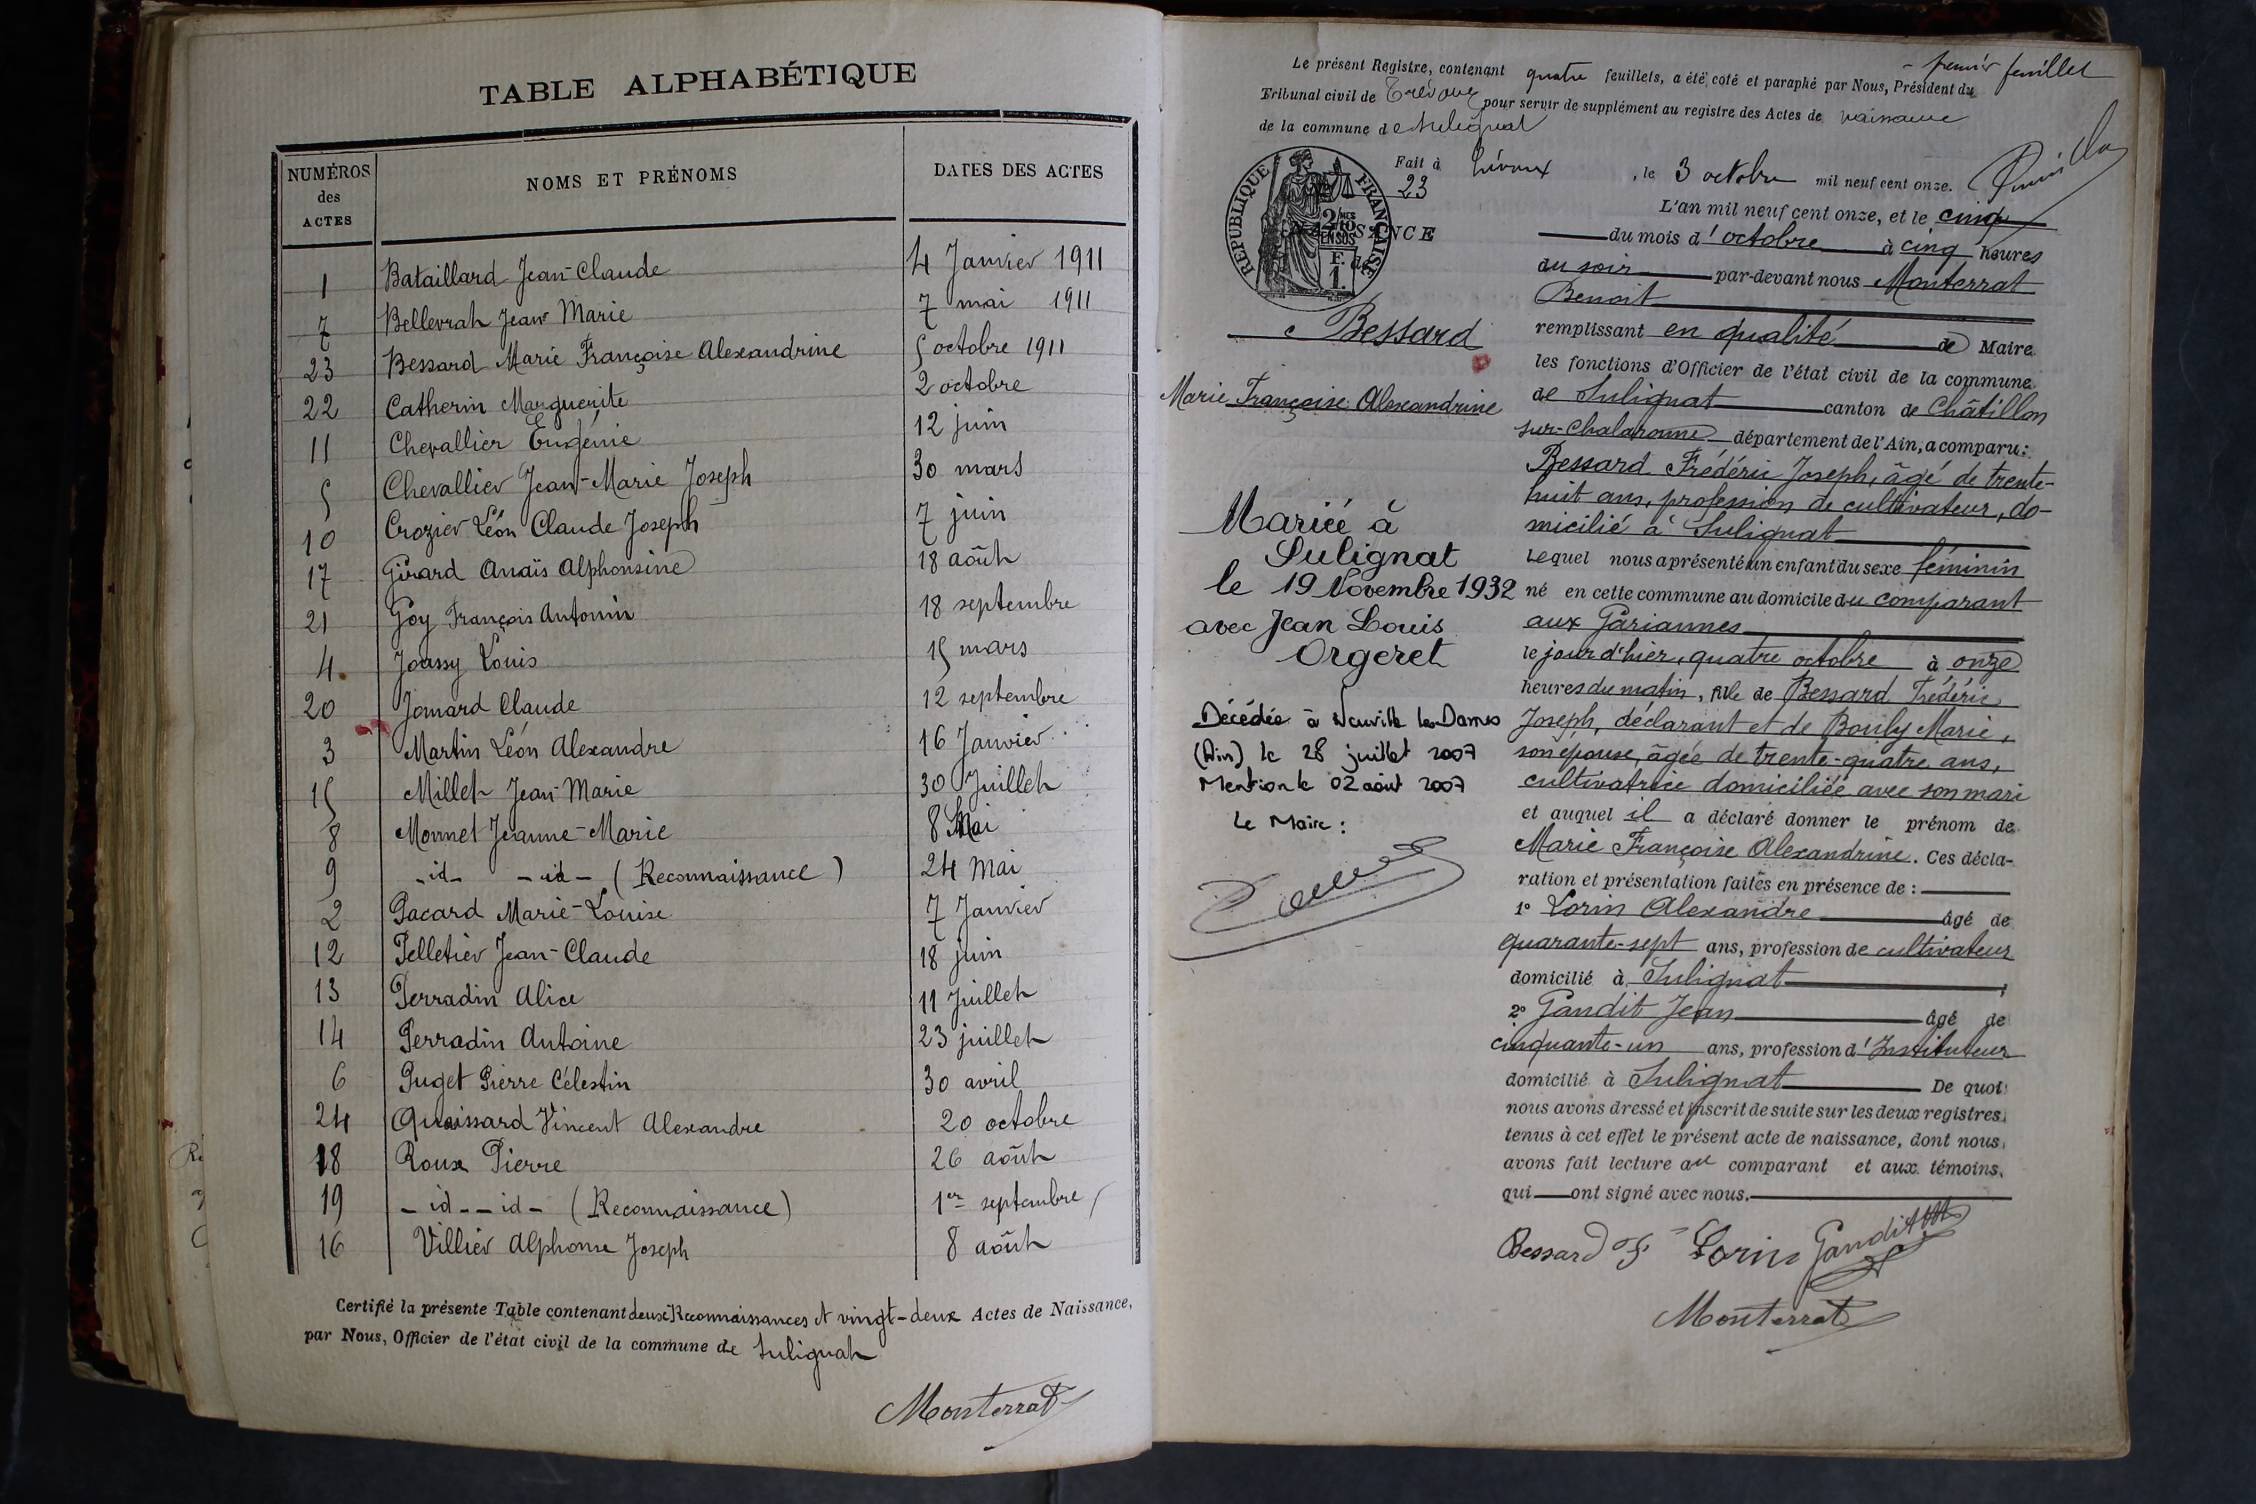 TABLE ALPHABÉTIQUE
NUMÉROS des ACTES NOMS ET PRÉNOMS DATES DES ACTES
1 Bataillard Jean-Claude 4 Janvier 1911
7 Bellevrah Jean Marie 7 mai 1911
23 Bessard Marie Françoise Alexandrine 5 octobre 1911
22 Catherin Marguerite 2 octobre
11 Chevallier Eugénie 12 juin
5 Chevallier Jean-Marie Joseph 30 mars
10 Crozier Léon Claude Joseph 7 juin
17 Girard Anaïs Alphonsine 18 août
21 Goy François Antonin 18 septembre
4. Joassy Louis 15 mars
20 Jomard Claude 12 septembre
3 Martin Léon Alexandre 16 Janvier
15 Millet Jean-Marie 30 Juillet
8 Monnet Jeanne-Marie 8 Mai
9 -id- -id- (Reconnaissance) 24 Mai
2 Pacard Marie-Louise 7 Janvier
12 Pelletier Jean-Claude 18 juin
13 Perradin Alice 11 Juillet
14 Perradin Antoine 23 juillet
6 Puget Pierre Célestin 30 avril
24 Quoissard Vincent Alexandre 20 octobre
18 Roux Pierre 26 août
19 -id- -id- (Reconnaissance) 1er septembre
16 Villier Alphonse Joseph 8 août
Certifié la présente Table contenant deux Reconnaissances et vingt-deux Actes de Naissance,
par Nous, Officier de l'état civil de la commune de Sulignat
Monterrat
premier feuillet
Le présent Registre, contenant quatre feuillets, a été coté et paraphé par Nous, Président du
Tribunal civil de Trévoux pour servir de supplément au registre des Actes de naissance
de la commune de Sulignat
Fait à Trévoux, le 3 octobre mil neuf cent onze.
RÉPUBLIQUE FRANÇAISE
2/10 MES
EN SUS
1 F.
23
NAISSANCE
de
Bessard
Marie Françoise Alexandrine
Mariée à
Sulignat
le 19 Novembre 1932
avec Jean Louis
Orgeret
Décédée à Neuville les Dames
(Ain) le 28 juillet 2007
Mention le 02 août 2007
Le Maire :
L'an mil neuf cent onze, et le cinq
du mois d'octobre à cinq heures
du soir par-devant nous Monterrat
Benoit
remplissant en qualité de Maire
les fonctions d'Officier de l'état civil de la commune
de Sulignat canton de Châtillon
sur-Chalaronne département de l'Ain, a comparu :
Bessard Frédéric Joseph, âgé de trente-
huit ans, profession de cultivateur, do-
micilié à Sulignat
Lequel nous a présenté un enfant du sexe féminin
né en cette commune au domicile du comparant
aux Gariannes
le jour d'hier, quatre octobre à onze
heures du matin, fille de Bessard Frédéric
Joseph, déclarant et de Bouly Marie,
son épouse, âgée de trente-quatre ans,
cultivatrice domiciliée avec son mari
et auquel il a déclaré donner le prénom de
Marie Françoise Alexandrine. Ces décla-
ration et présentation faites en présence de :
1° Lorin Alexandre âgé de
quarante-sept ans, profession de cultivateur
domicilié à Sulignat ;
2° Gandit Jean âgé de
cinquante-un ans, profession d'Instituteur
domicilié à Sulignat De quoi
nous avons dressé et inscrit de suite sur les deux registres
tenus à cet effet le présent acte de naissance, dont nous
avons fait lecture au comparant et aux témoins,
qui ont signé avec nous.
Bessard F Lorin Gandit
Monterrat